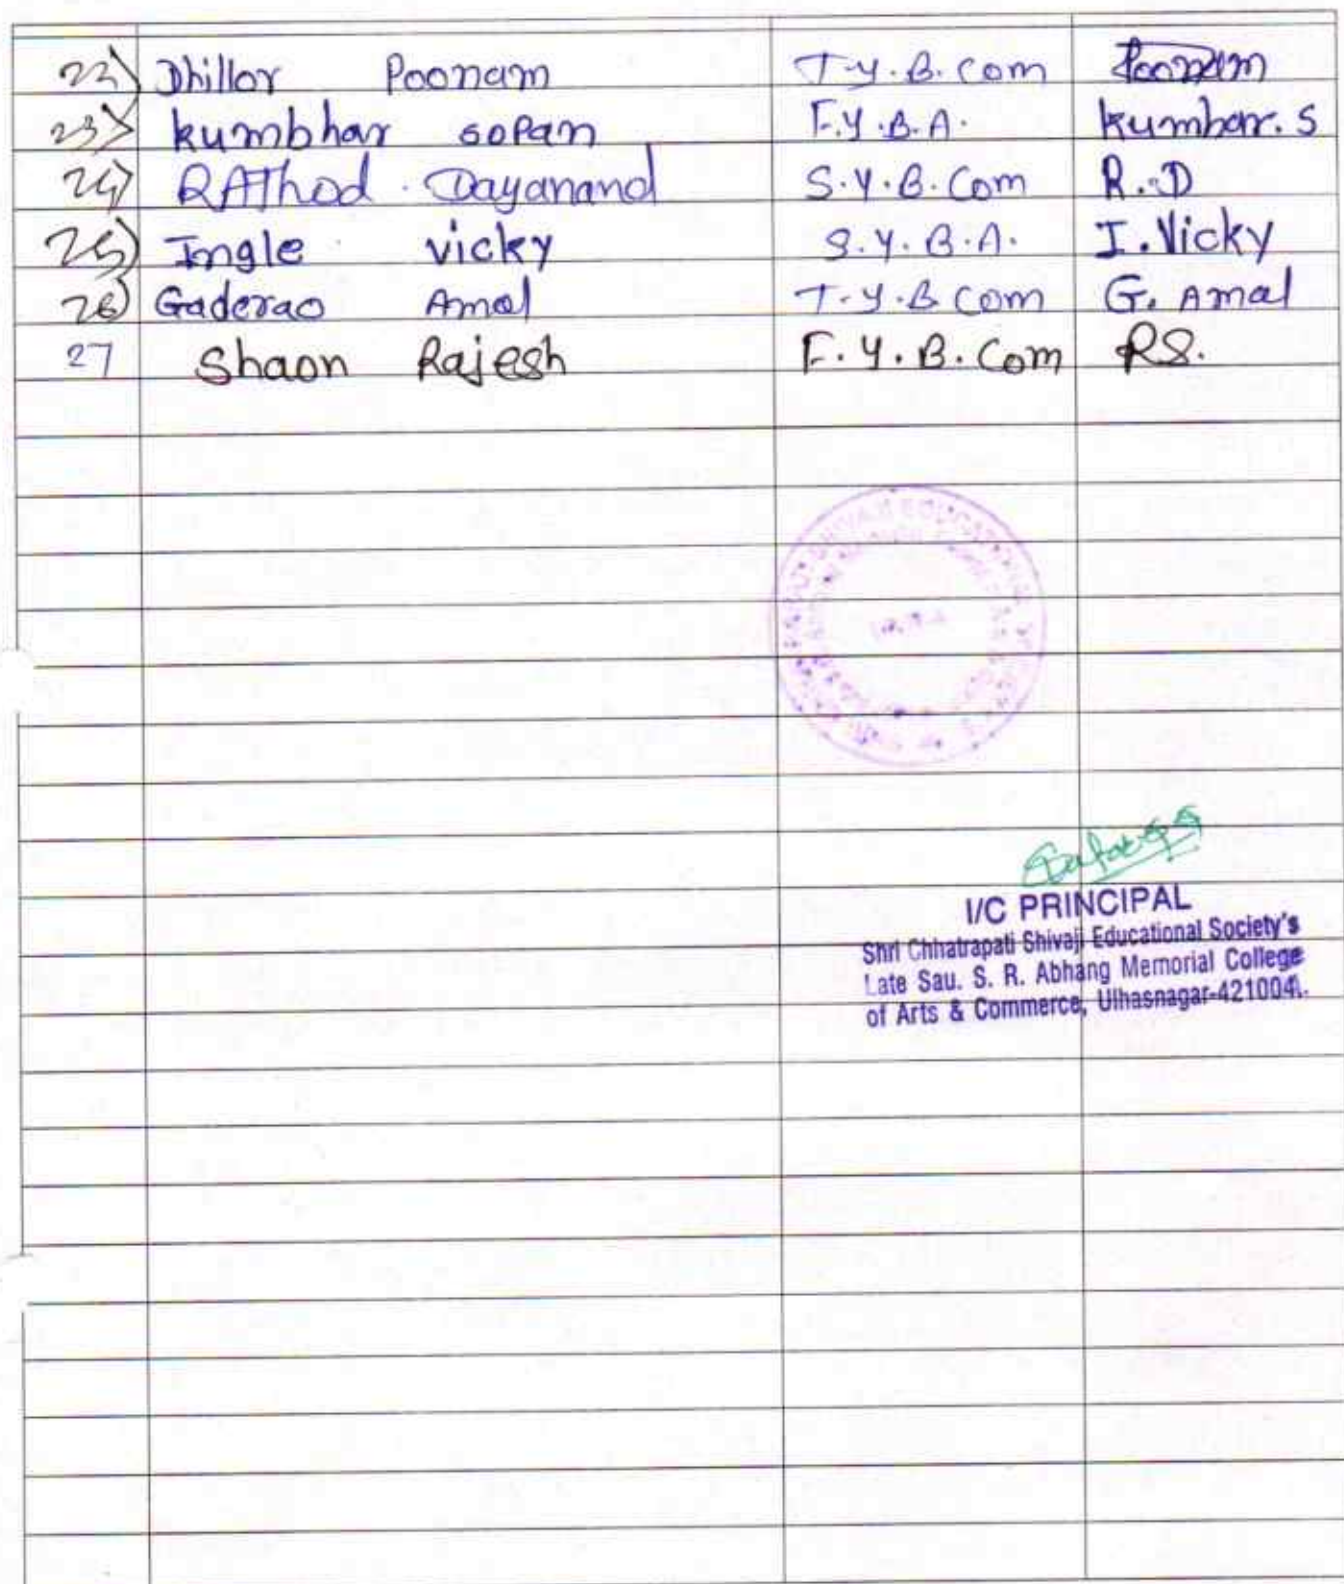 22) Dhillor Poonam T.Y.B.Com Poonam
23) kumbhar sopan F.Y.B.A. kumbhar.S
24) RAThod. Dayanand S.Y.B.Com R.D
25) Ingle vicky S.Y.B.A. I.Vicky
26) Gaderao Amol T.Y.B Com G. Amal
27 Shaon Rajesh F.Y.B.Com RS.
I/C PRINCIPAL
Shri Chhatrapati Shivaji Educational Society's
Late Sau. S. R. Abhang Memorial College
of Arts & Commerce, Ulhasnagar-421004.